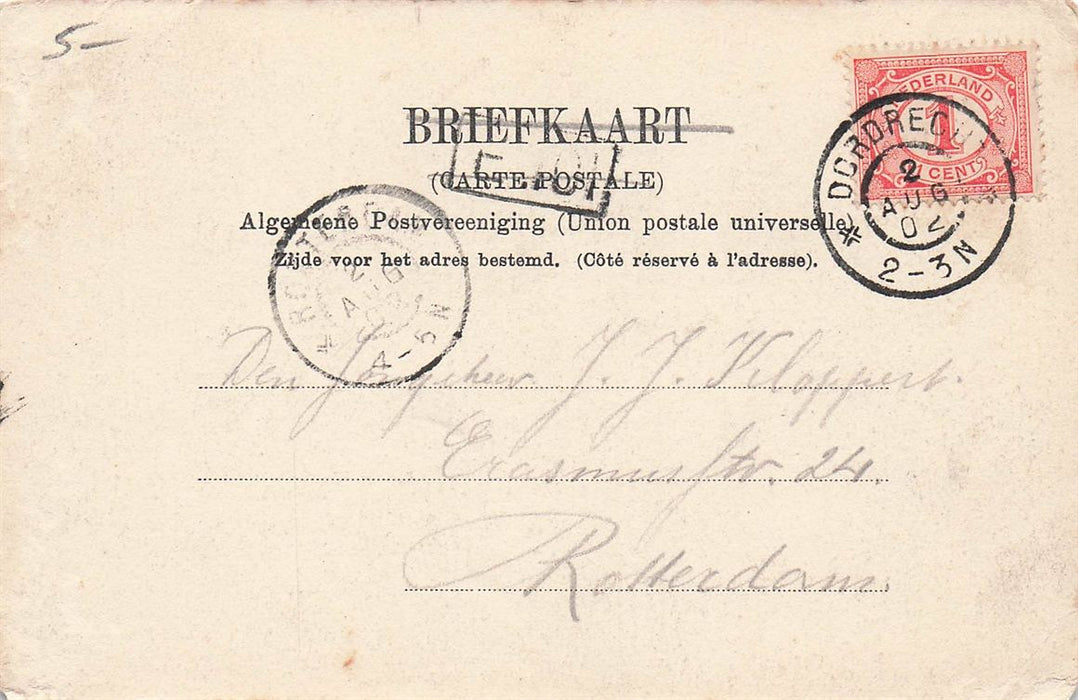 5-
NEDERLAND
1
CENT
DORDRECH
2
AUG
02
2-3N
BRIEFKAART
(CARTE POSTALE)
Algemeene Postvereeniging (Union postale universelle)
Zijde voor het adres bestemd. (Côté réservé à l'adresse).
2
AUG
4-5N
Den Jongeheer J. J. Kloppert.
Erasmusstr. 24.
Rotterdam.